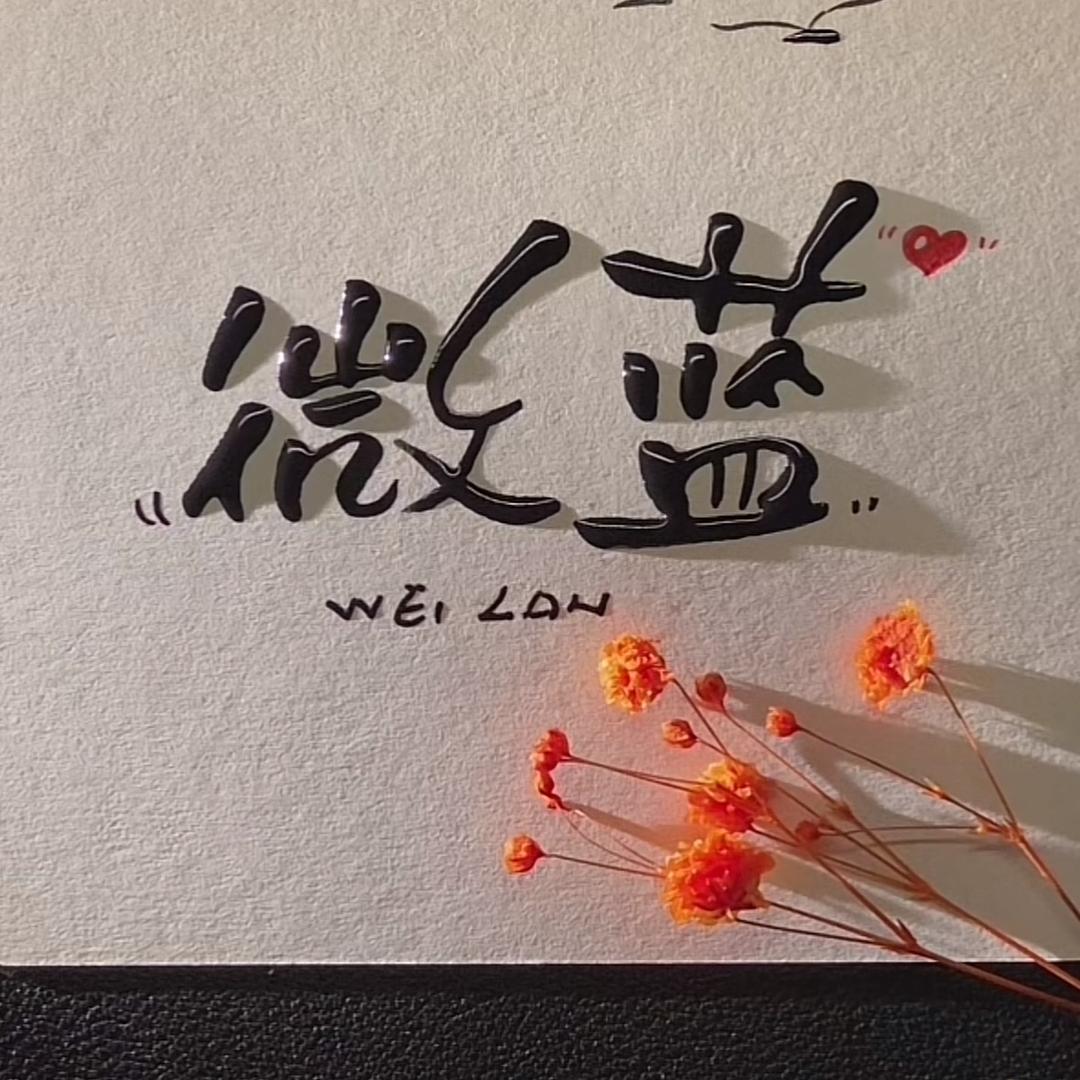 微蓝
WEI LAN